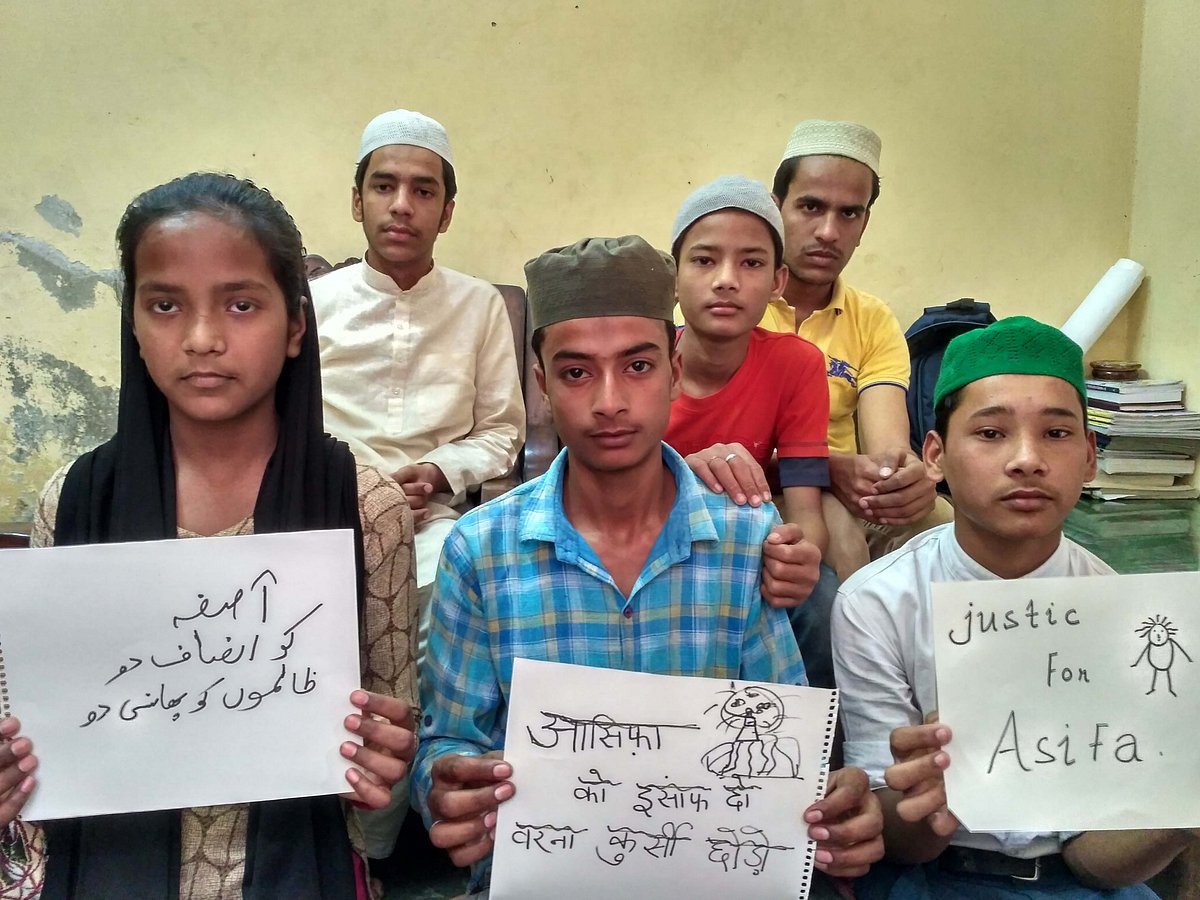 آصفہ
کو انصاف دو
ظالموں کو پھانسی دو
आसिफ़ा
को इंसाफ दो
वरना कुर्सी छोड़ो
justic
For
Asifa.